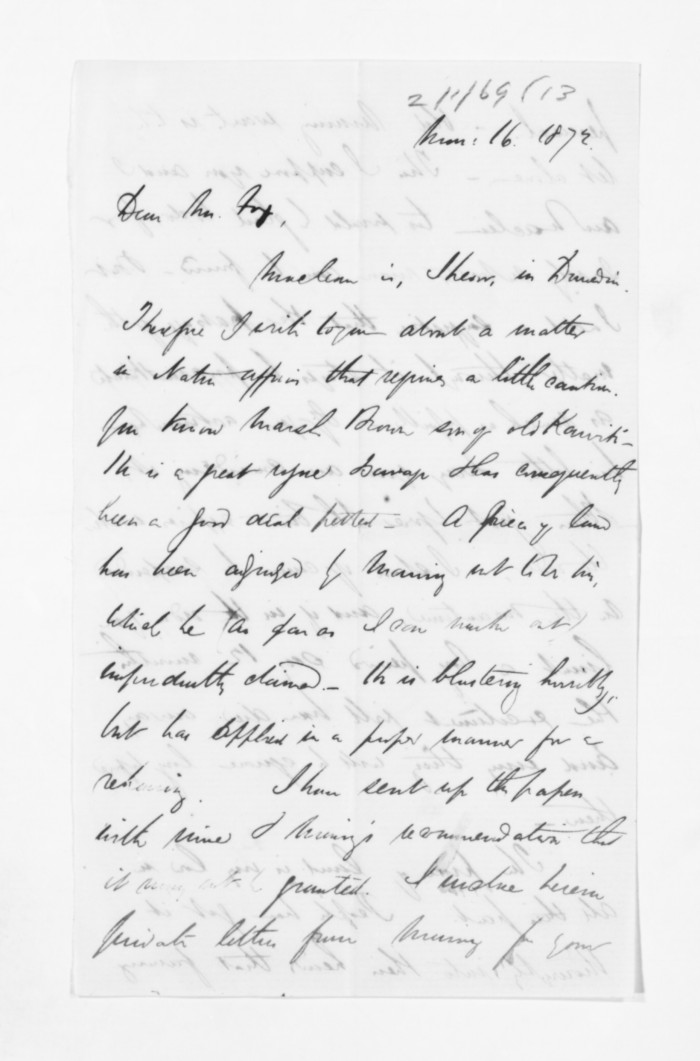 2/1/69 (13
16. 1872.
Dear Mr. Fox,
Maclean is, I hear, in Dunedin.
Therefore I write to you about a matter
in Native affairs that requires a little caution.
You know Marsh Brown son of old Kawiti –
He is a great rogue & savage & has consequently
been a good deal petted – A piece of land
has been adjudged by Maning not to be his,
which he (as far as I can make out)
impudently claimed. – He is blustering horribly,
but has applied in a proper manner for a
rehearing. I have sent up the papers
with mine & Maning's recommendation that
it may be granted. I enclose herein
private letters from Maning for your